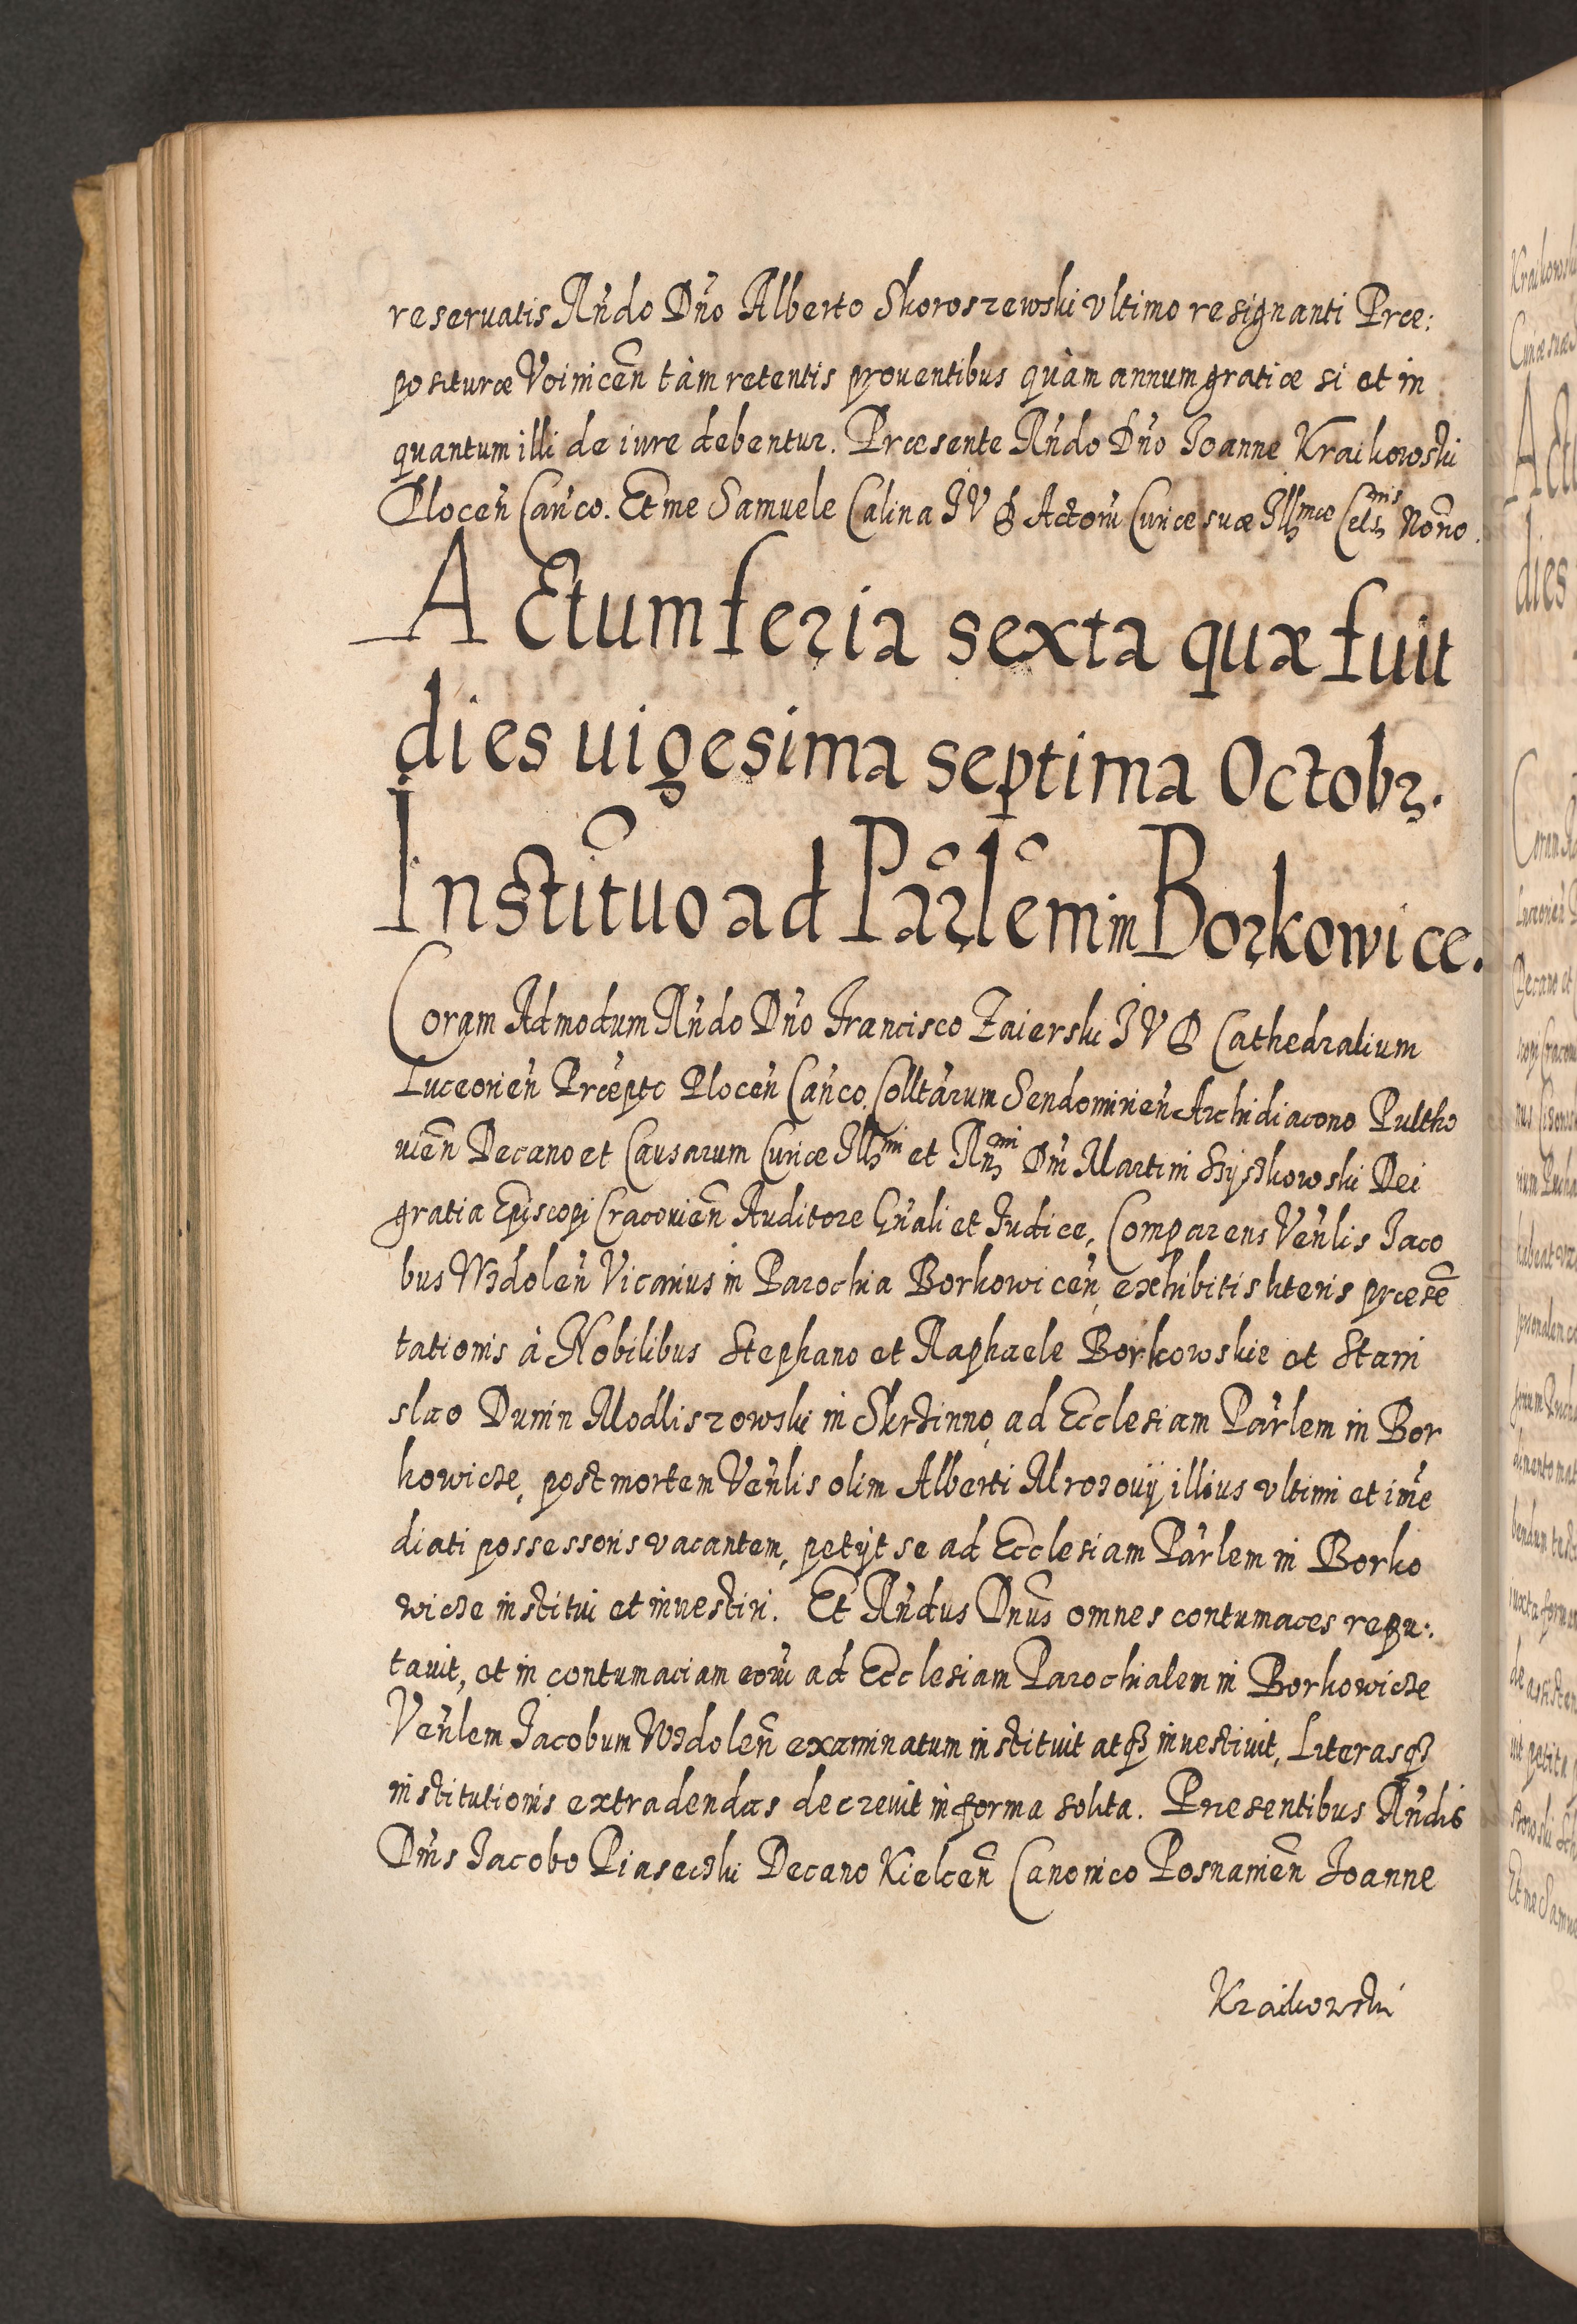 reseruatis Rñdo Dño Alberto Skoroszewski vltimo resignanti Præ:
posituræ Voinicen̄ tàm retentis prouentibus quàm annum gratiæ si et in
quantum illi de iure debentur. Præsente Rñdo Dño Ioanne Kraikowski
Plocen̄ Can̄co. Et me Samuele Calina IVD Actorū Curiæ suæ Illmæ Celsnis Norio.
Actum feria sexta quæ fuit
dies uigesima septima Octobr.
Institũo ad Par̃lem in Borkowice.
Coram Admodum Rñdo Dño Francisco Zaierski IVD Cathedralium
Luceorien̄ Præpto Plocen̄ Can̄co. Colltarum Sendomirien̄ Archidiacono Pultho
uien̄ Decano et Causarum Curiæ Illmi et Rndmi Dn̄i Martini Szyszkowski Dei
gratia Ep̄iscopi Cracouien̄ Auditore Gñali et Iudice, Comparens Ven̄lis Iaco
bus Wdolen̄ Vicarius in Parochia Borkowicen̄, exhibitis literis præsē
tationis à Nobilibus Stephano et Raphaele Borkowskie et Stani
slao Dunin Modliszowski in Skrzinno, ad Ecclesiam Par̄lem in Bor
kowicze, post mortem Ven̄lis olim Alberti Mrozouij illius vltimi et im̄e
diati possessoris vacantem, petijt se ad Ecclesiam Par̄lem in Borko
wicze institui et inuestiri. Et Rñdus Dnūs omnes contumaces repu:
tauit, et in contumaciam eorū ad Ecclesiam Parochialem in Borkowicze
Ven̄lem Iacobum Wdolen̄ examinatum instituit atq; inuestiuit, Literasq;
institutionis extradendas decreuit in forma solita. Presentibus Rñdis
Dn̄is Iacobo Piaseczki Decano Kielcen̄ Canonico Posnanien̄ Ioanne
Kraikowski